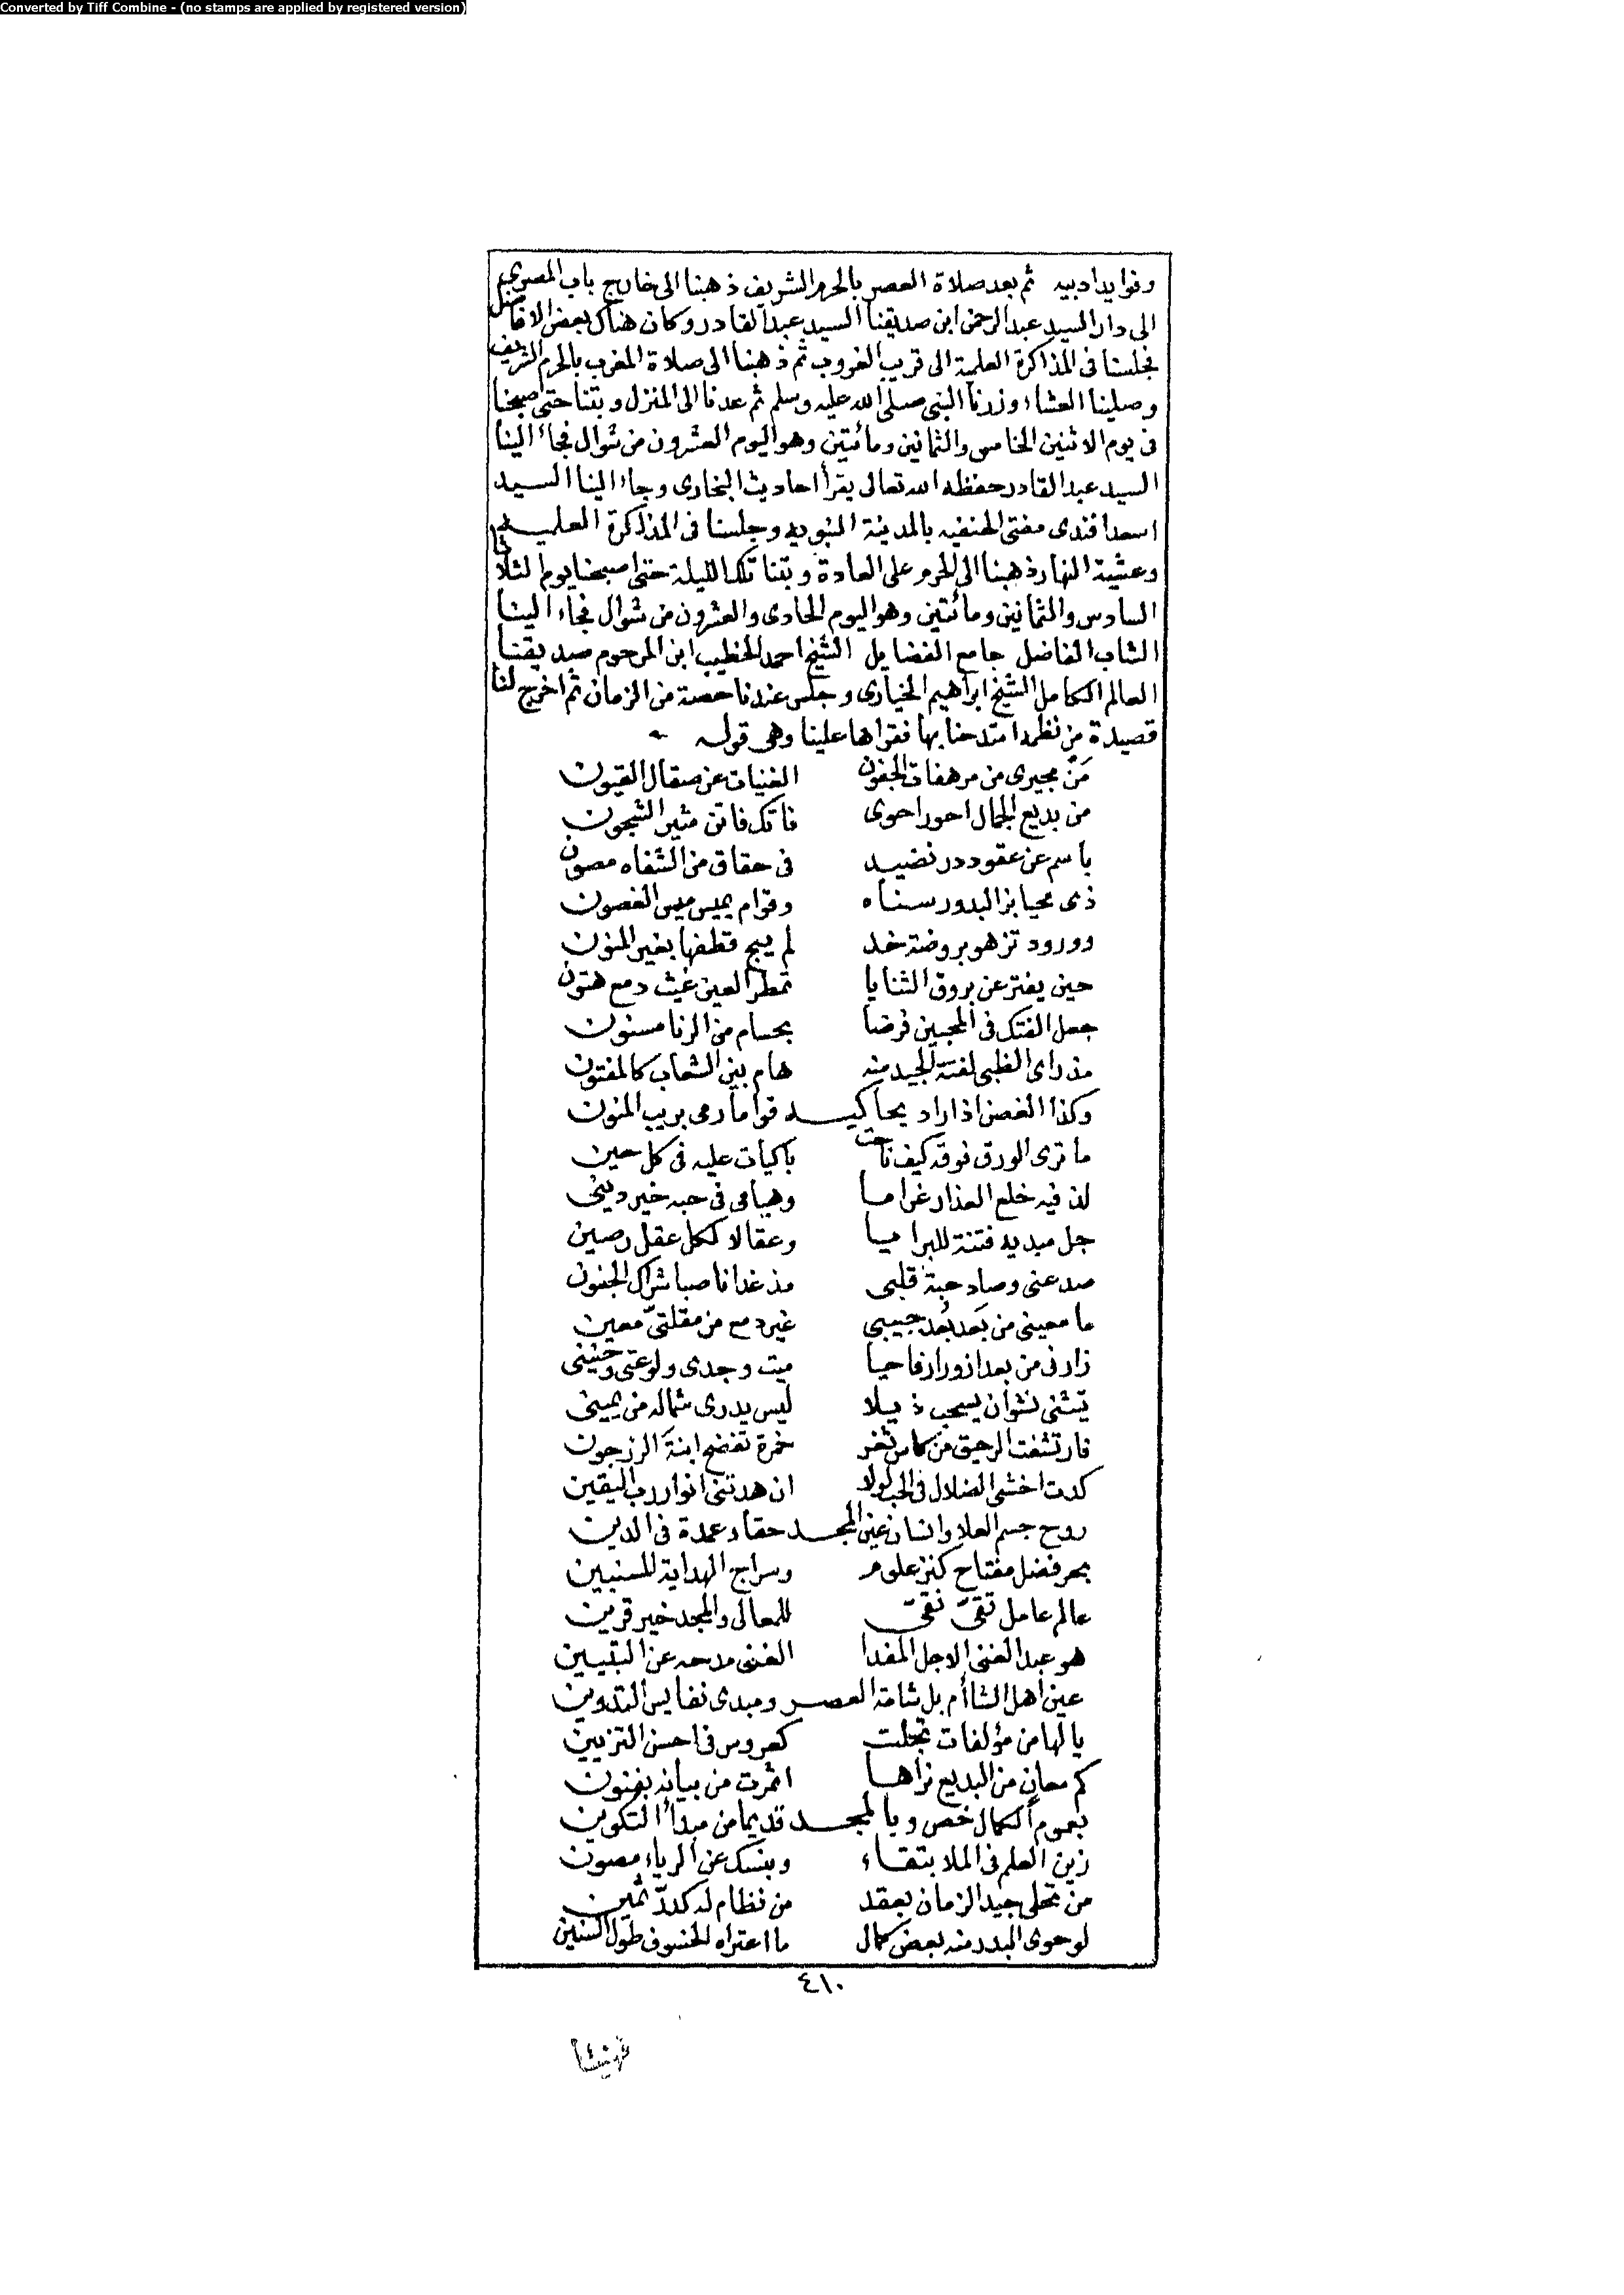 Converted by Tiff Combine - (no stamps are applied by registered version)
وفوايد ادبيه ثم بعد صلاة العصر بالحرم الشريف ذهبنا الى خارج باب المصرى
الى دار السيد عبد الرحمن ابن صديقنا السيد عبد القادر وكان هناك بعض الافاضل
فجلسنا فى المذاكرة العلمية الى قريب الغروب ثم ذهبنا الى صلاة المغرب بالحرم الشريف
وصلينا العشاء وزرنا النبى صلى الله عليه وسلم ثم عدنا الى المنزل وبتنا حتى اصبحنا
فى يوم الاثنين الخامس والثمانين ومائتين وهو اليوم العشرون من شوال فجاء الينا
السيد عبد القادر حفظه الله تعالى يقرأ احاديث البخارى وجاء الينا السيد
اسعد افندى مفتى الحنفيه بالمدينة النبويه وجلسنا فى المذاكرة العلميه
وعشية النهار ذهبنا الى الحرم على العادة وبتنا تلك الليلة حتى اصبحنا يوم الثلاثا
السادس والثمانين ومائتين وهو اليوم الحادى والعشرون من شوال فجاء الينا
الشاب الفاضل جامع الفضايل الشيخ احمد الخطيب ابن المرحوم صديقنا
العالم الكامل الشيخ ابراهيم الخيارى وجلس عندنا حصة من الزمان ثم اخرج لنا
قصيدة من نظمه امتدحنا بها فقراها علينا وهى قوله
مَنْ مجيرى من مرهفات الجفون الغنيات عن صقال القيون
من بديع الجمال احور احوى فاتك فاتن مثير الشجون
باسم عن عقود در نضيد فى حقاق من الشفاه مصون
ذى محيا بز البدور سناه وقوام يميس ميس الغصون
وورود تزهو بروضة خد لم يبح قطفها بغير المنون
حين يفتر عن بروق الثنايا تمطر العين غيث دمع هتون
جعل الفتك فى المحبين فرضا بحسام من الرنا مسنون
مذ راى الظبى لفتة الجيد منه هام بين الشعاب كالمفتون
وكذا الغصن اذ اراد يحاكيه قواما رمى بريب المنون
ما ترى الورق فوقه كيف ناحت باكيات عليه فى كل حين
لذ فيه خلع العذار غراما وهيامى فى حبه خير دينى
جل مبديه فتنة للبرايا وعقالا لكل عقل رصين
صد عنى وصاد حبة قلبى مذ غدا ناصبا شراك الجفون
ما معينى من بَعد بُعد حبيبى غير دمع من مقلتىّ معين
زارنى من بعد ازورار فاحيا ميت وجدى ولوعتى وحنينى
يتثنى نشوان يسحب ذيلا ليس يدرى شماله من يمينى
فارتشفت الرحيق من كاس ثغر خمرة تفضح ابنة الزرجون
كدت اخشى الضلال فى الحب لولا ان هدتنى انوار رب اليقين
روح جسم العلا وانسان عين المجد حقا وعمدة فى الدين
بحر فضل مفتاح كنز علوم وسراج الهداية للمستبين
عالم عامل تقىّ نقىّ للمعالى والمجد خير قرين
هو عبد الغنى الاجل المفدا الغنى مدحه عن التبيين
عين اهل الشاأم بل شامة العصر ومبدى نفايس التدوين
يالها من مؤلفات تجلت كعروس فى احسن التزيين
كم معانٍ من البديع نراها اثمرت من بيانه بفنون
بعموم الكمال خص وبالمجد قديما من مبدأ التكوين
زين العلم فى الملا بتقاء وبنسك عن الرياء مصون
من تحلى جيد الزمان بعقد من نظام له كدرّ ثمين
لو حوى البدر منه بعض كمال ما اعتراه الخسوف طول السنين
٤١٠